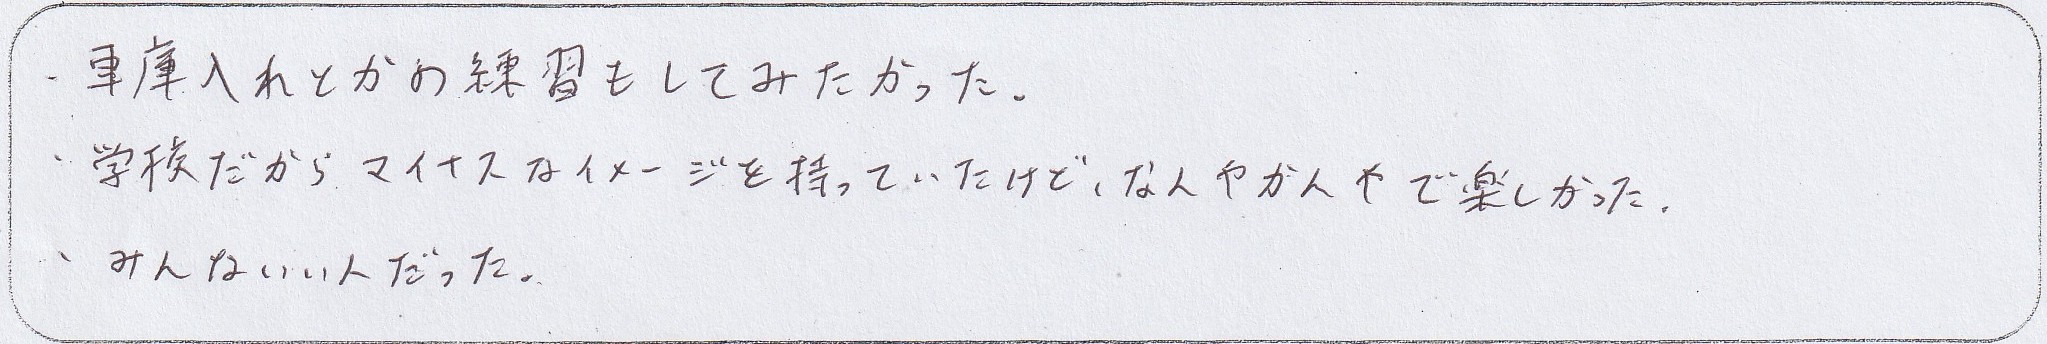 ・車庫入れとかの練習もしてみたかった。
・学校だからマイナスなイメージを持っていたけど、なんやかんやで楽しかった。
・みんないい人だった。